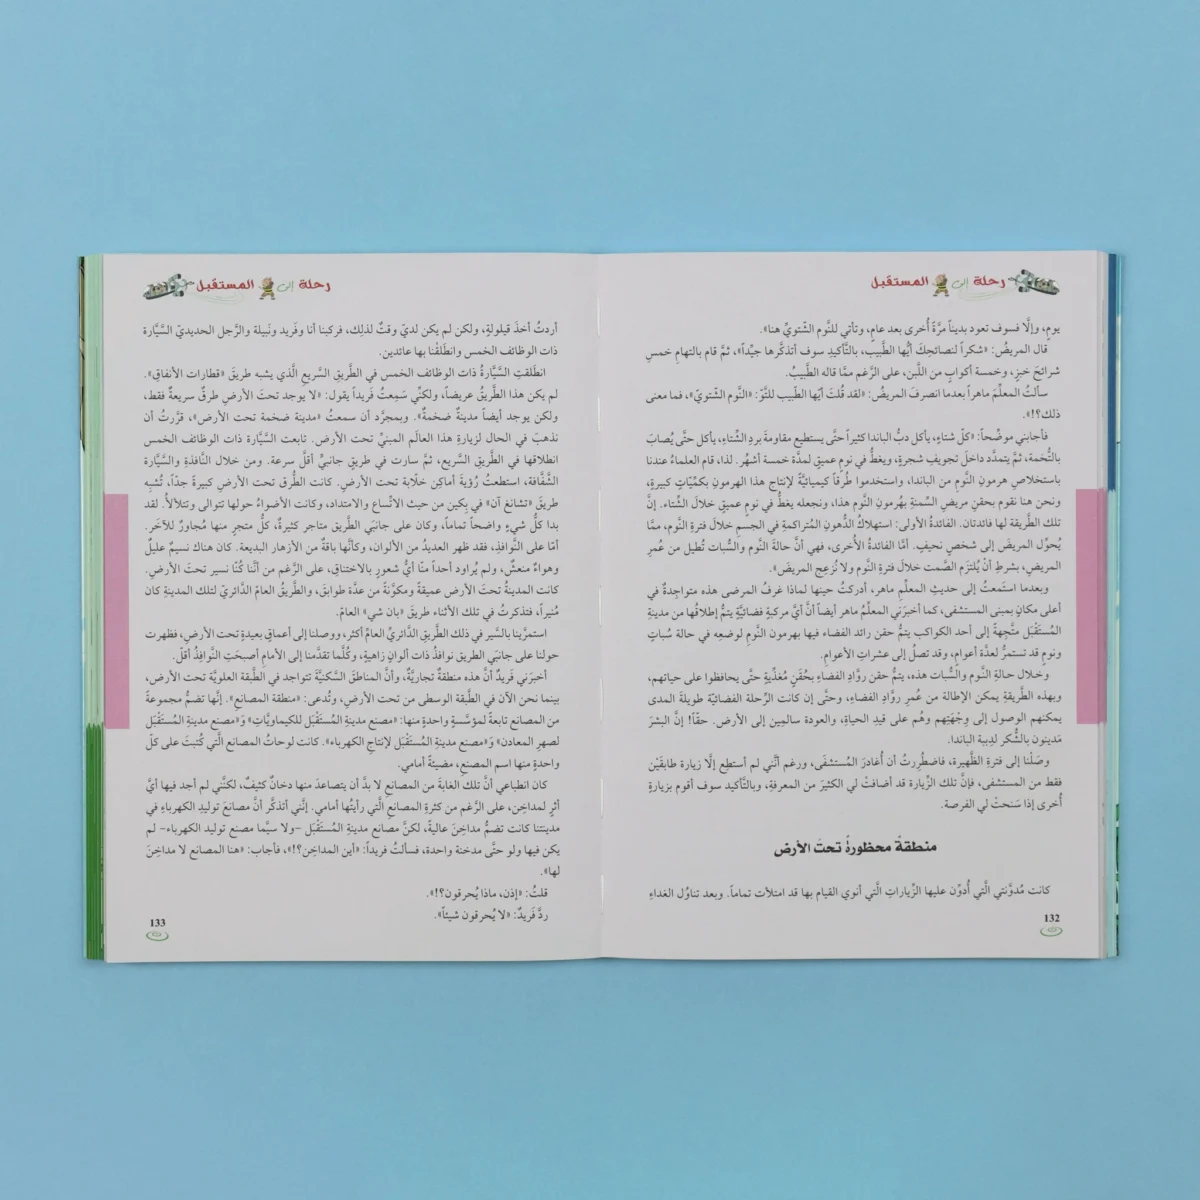 رحلة إلى المستقبل
يومٍ، وإلَّا فسوف تعود بديناً مرَّةً أُخرى بعد عامٍ، وتأتي للنَّوم الشّتويِّ هنا».
قال المريضُ: «شكراً لنصائحِكَ أيُّها الطَّبيب، بالتَّأكيدِ سوف أتذكَّرها جيِّداً»، ثمَّ قام بالتهامِ خمسِ
شرائحَ خبزٍ، وخمسة أكوابٍ من اللَّبن، على الرَّغم ممَّا قاله الطَّبيبُ.
سألتُ المعلِّمَ ماهراً بعدما انصرفَ المريضُ: «لقد قُلتَ أيّها الطَّبيب للتَّوّ: «النَّوم الشّتويّ»، فما معنى
ذلك؟!».
فأجابني موضِّحاً: «كلّ شتاءٍ، يأكل دبُّ الباندا كثيراً حتَّى يستطيع مقاومةَ بردِ الشّتاءِ، يأكل حتَّى يُصابَ
بالتُّخمة، ثمَّ يتمدَّد داخلَ تجويفِ شجرةٍ، ويغطُّ في نومٍ عميقٍ لمدَّة خمسة أشهُرٍ. لذا، قام العلماءُ عندنا
باستخلاصِ هرمونِ النَّومِ من الباندا، واستخدموا طُرقاً كيميائيَّةً لإنتاج هذا الهرمونِ بكمِّيّاتٍ كبيرةٍ،
ونحن هنا نقوم بحقنِ مريضِ السِّمنةِ بهُرمونِ النَّوم هذا، ونجعله يغطُّ في نومٍ عميقٍ خلالَ الشّتاء. إنَّ
تلك الطَّريقة لها فائدتان. الفائدةُ الأولى: استهلاكُ الدُّهونِ المُتراكمةِ في الجسمِ خلالَ فترةِ النَّوم، ممَّا
يُحوِّل المريضَ إلى شخصٍ نحيفٍ. أمَّا الفائدةُ الأُخرى، فهي أنَّ حالةَ النَّوم والسُّبات تُطيل من عُمرِ
المريضِ، بشرطِ أنْ يُلتزَم الصَّمت خلالَ فترةِ النَّوم ولا تُزعِج المريضَ».
وبعدما استَمعتُ إلى حديثِ المعلِّمِ ماهر، أدركتُ حينها لماذا غرفُ المرضى هذه متواجِدةٌ في
أعلى مكانٍ بمبنى المستشفى، كما أخبرَني المعلِّمُ ماهر أيضاً أنَّ أيَّ مركبةٍ فضائيَّةٍ يتمُّ إطلاقُها من مدينةِ
المُستَقْبَل متَّجِهةً إلى أحد الكواكبِ يتمُّ حقن رائد الفضاء فيها بهرمون النَّوم لوضعِه في حالة سُباتٍ
ونومٍ قد تستمرُّ لعدَّة أعوامٍ، وقد تصلُ إلى عشراتِ الأعوامِ.
وخلالَ حالةِ النَّوم والسُّبات هذه، يتمُّ حقن روَّادِ الفضاءِ بحُقَنٍ مُغذّيةٍ حتَّى يحافظوا على حياتهم،
وبهذه الطَّريقةِ يمكن الإطالة من عُمرِ روَّادِ الفضاءِ، وحتَّى إن كانت الرِّحلة الفضائيّة طويلةَ المدى
يمكنهم الوصول إلى وِجْهَتِهم وهُم على قيدِ الحياةِ، والعودة سالمِين إلى الأرض. حقّاً! إنَّ البشرَ
مَدينون بالشُّكر لدِببة الباندا.
وصَلْنا إلى فترةِ الظَّهيرة، فاضطُرِرتُ أن أُغادرَ المُستشفَى، ورغم أنَّني لم أستطِع إلَّا زيارة طابقَيْن
فقط من المستشفى، فإنَّ تلك الزِّيارة قد أضافت لي الكثيرَ من المعرفةِ، وبالتَّأكيد سوف أقوم بزيارةٍ
أُخرى إذا سَنحتْ لي الفرصة.
منطقةٌ محظورةٌ تحتَ الأرضِ
كانت مُدوَّنتي الَّتي أُدوِّن عليها الزِّياراتِ الَّتي أنوي القيام بها قد امتلأت تماماً. وبعد تناوُل الغداءِ
132
رحلة إلى المستقبل
أردتُ أخذَ قيلولةٍ، ولكن لم يكن لديَّ وقتٌ لذلِك، فركبنا أنا وفَريد ونَبيلة والرَّجل الحديديّ السَّيَّارة
ذات الوظائف الخمس وانطَلقْنا بها عائدين.
انطلَقتِ السَّيَّارةُ ذات الوظائف الخمس في الطَّريقِ السَّريعِ الَّذي يشبه طريقَ «قطارات الأنفاقِ».
لم يكن هذا الطَّريقُ عريضاً، ولكنَّي سَمِعتُ فَريداً يقول: «لا يوجد تحتَ الأرضِ طرقٌ سريعةٌ فقط،
ولكن يوجد أيضاً مدينةٌ ضخمةٌ». وبمجرَّد أن سمعتُ «مدينة ضخمة تحت الأرض»، قرَّرتُ أن
نذهبَ في الحال لزيارةِ هذا العالَم المبنيِّ تحت الأرض. تابعت السَّيَّارة ذات الوظائف الخمس
انطلاقَها في الطَّريقِ السَّريع، ثمَّ سارت في طريقٍ جانبيٍّ أقلَّ سرعة. ومن خلال النَّافذةِ والسَّيَّارة
الشَّفَّافة، استطعتُ رُؤيةَ أماكنَ خلَّابة تحتَ الأرض. كانت الطُّرق تحت الأرضِ كبيرةً جدّاً، تُشبِه
طريقَ «تشانغ آن» في بِكين من حيث الاتّساع والامتداد، وكانت الأضواءُ حولها تتوالى وتتلألأُ. لقد
بدا كلُّ شيءٍ واضحاً تماماً، وكان على جانبَي الطَّريق متاجر كثيرةٌ، كلُّ متجرٍ منها مُجاورٌ للآخَر.
أمّا على النَّوافذِ، فقد ظهر العديدُ من الألوان، وكأنَّها باقةٌ من الأزهار البديعة. كان هناك نسيمٌ عليلٌ
وهواءٌ منعشٌ، ولم يُراود أحداً منّا أيُّ شعورٍ بالاختناقِ، على الرَّغم من أنَّنا كُنّا نسير تحتَ الأرضِ.
كانت المدينةُ تحتَ الأرضِ عميقةً ومكوَّنةً من عدَّة طوابقَ، والطَّريقُ العامّ الدَّائريّ لتلك المدينةِ كان
مُنيراً، فتذكرتُ في تلك الأثناء طريقَ «بان شي» العامّ.
استمرَّينا بالسَّير في ذلك الطَّريقِ الدَّائريِّ العامِّ أكثر، ووصلنا إلى أعماقٍ بعيدةٍ تحتَ الأرضِ، فظهرت
حولنا على جانبَي الطريق نوافذُ ذات ألوانٍ زاهيةٍ، وكُلَّما تقدَّمنا إلى الأمامِ أصبحَتِ النَّوافذُ أقلّ.
أخبرَني فَريدٌ أنَّ هذه منطقةٌ تجاريَّةٌ، وأنَّ المناطقَ السَّكنيَّةَ تتواجد في الطَّبقة العلويَّة تحت الأرضِ،
بينما نحن الآن في الطَّبقة الوسطى من تحت الأرضِ، وتُدعى: «منطقة المصانع». إنَّها تضمُّ مجموعةً
من المصانع تابعةً لمؤسَّسةٍ واحدةٍ منها: «مصنع مدينةِ المُستَقْبَل للكيماويَّاتِ» وَ«مصنع مدينةِ المُستَقْبَل
لصهرِ المعادن» وَ«مصنع مدينةِ المُستَقْبَل لإنتاجِ الكهرباء». كانت لوحاتُ المصانع الَّتي كُتبتْ على كلّ
واحدةٍ منها اسم المصنعِ، مضيئةً أمامي.
كان انطباعي أنَّ تلك الغابةَ من المصانعِ لا بدَّ أن يتصاعدَ منها دخانٌ كثيفٌ، لكنَّني لم أجد فيها أيَّ
أثرٍ لمداخِنَ، على الرَّغم من كثرةِ المصانعِ الَّتي رأيتُها أمامي. إنَّني أتذكَّرُ أنَّ مصانعَ توليدِ الكهرباءِ في
مدينتنا كانت تضمُّ مداخِنَ عاليةً، لكنَّ مصانع مدينةِ المُستَقْبَل -ولا سيَّما مصنع توليد الكهرباء- لم
يكن فيها ولو حتَّى مدخنة واحدة، فسألتُ فَريداً: «أين المداخِن؟!»، فأجاب: «هنا المصانع لا مداخِنَ
لها».
قلتُ: «إذن، ماذا يُحرِقون؟!».
ردَّ فَريدٌ: «لا يُحرِقون شيئاً».
133